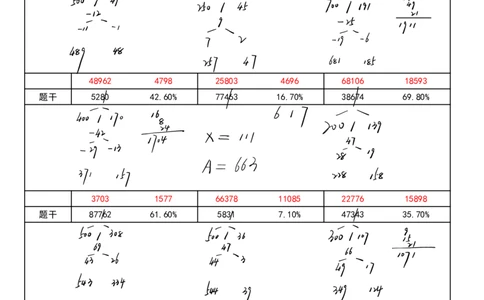 500 / 49
-12
-11 -1
489 48
250 / 45
9
7 2
257 47
700 / 191
-25
-19 -6
681 185
49
21
1911
48962 4798 25803 4696 68106 18593
题干 5280 42.60% 77463 16.70% 38674 69.80%
400 / 170
-42
-29 -13
371 157
16
8
24
1704
617
X = 111
A = 663
200 / 139
47
28 19
228 158
3703 1577 66378 11085 22776 15898
题干 87762 61.60% 5831 7.10% 47343 35.70%
500 / 308
69
43 26
543 334
500 / 36
47
44 3
544 39
300 / 107
66
49 17
349 124
9
15
21
1071